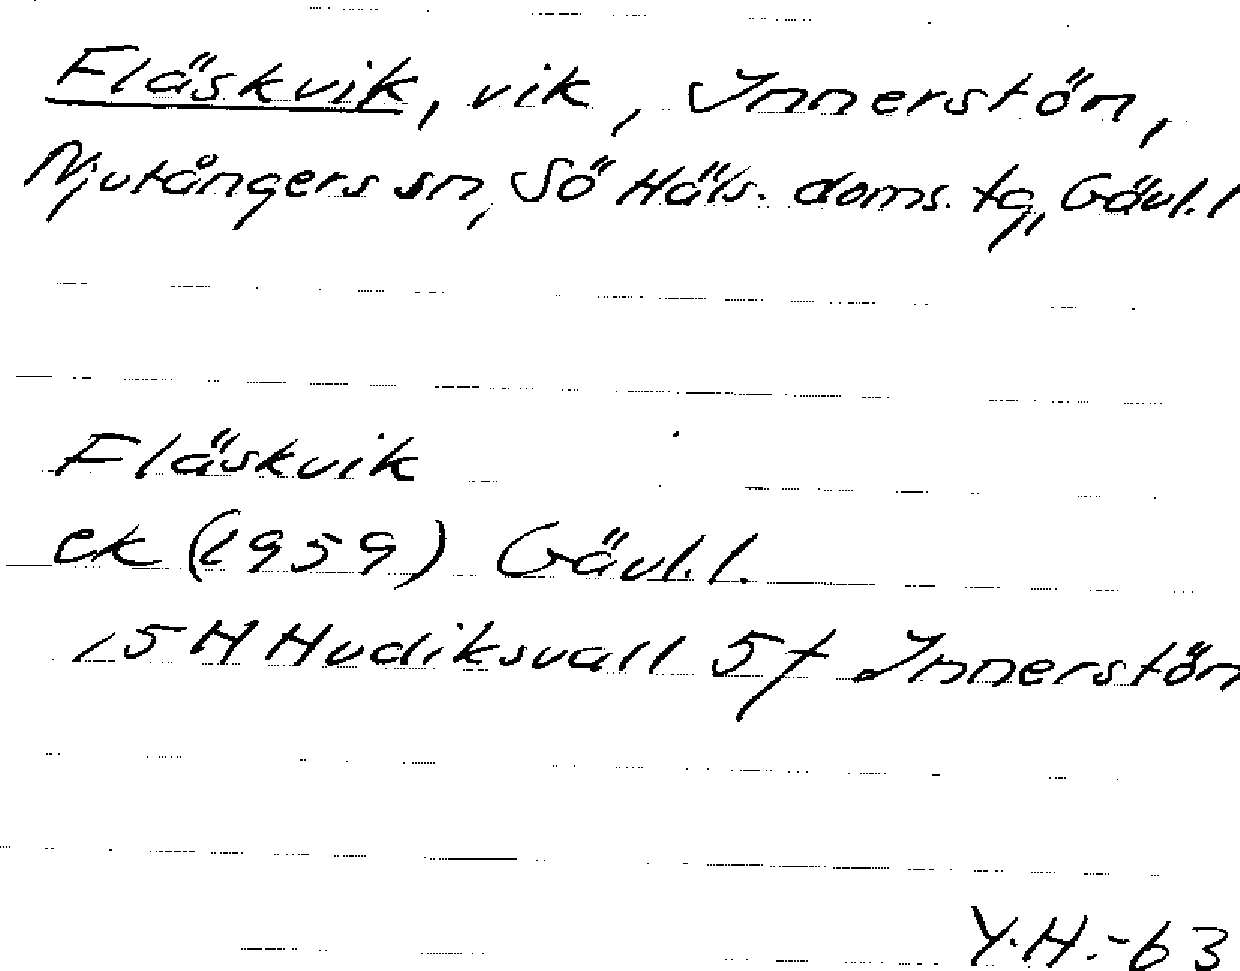 Fläskvik, vik, Innerstön,
Njutångers sn, Sö Häls. doms. tg, Gävl.l
Fläskvik
ek (1959) Gävl.l.
15H Hudiksvall 5f Innerstön
Y.H.-63